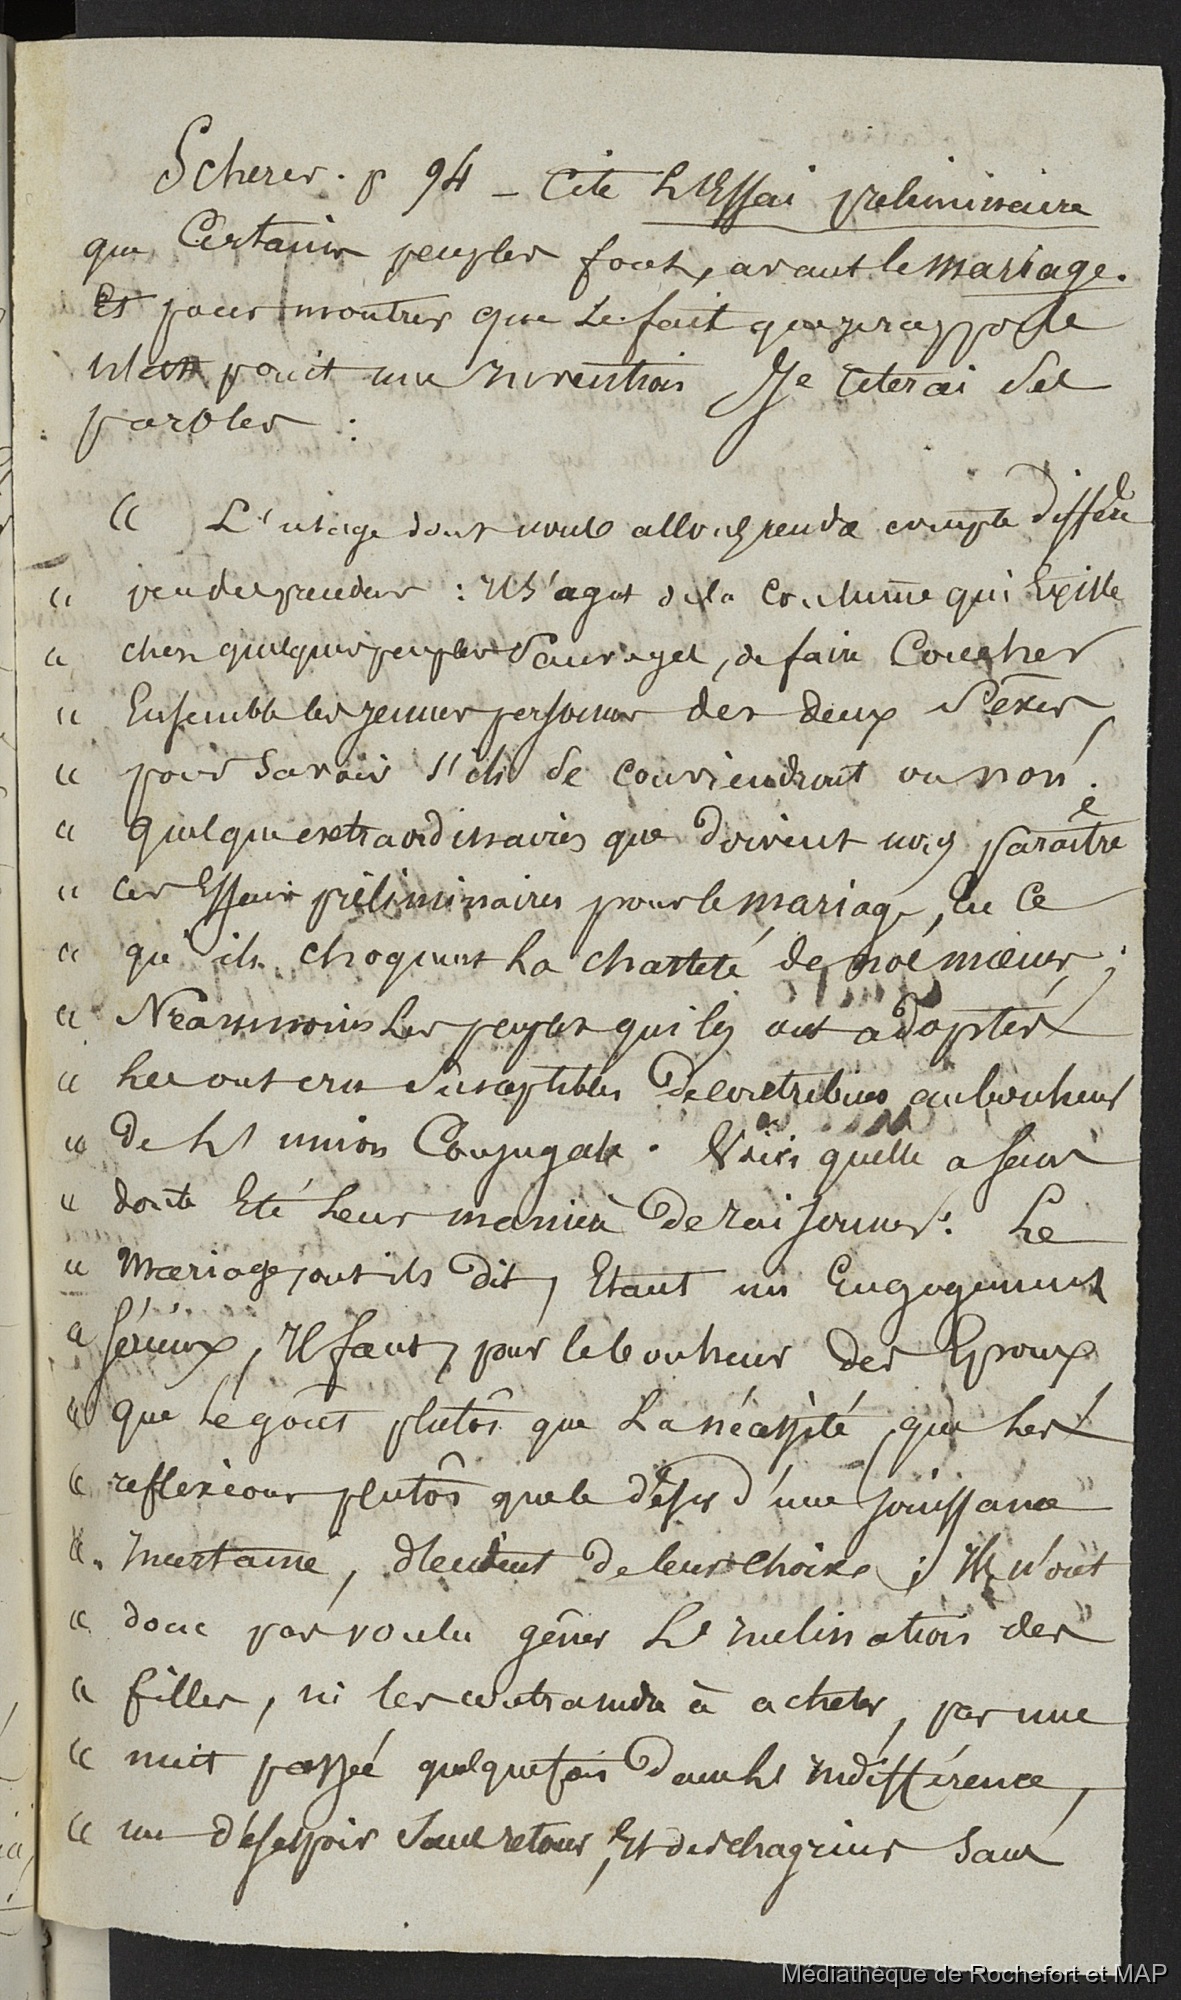 Scherer. p 94 - Cite L'Essai preliminaire
que Certains peuples font, avant le mariage.
Et pour montrer que Le fait que je rapporte
n'est point une Invention Je Citerai Ses
paroles :
" L'usage dont nous allons rendre compte differe
" peu du precedent : Il s'agit de la Coutume qui Existe
" chez quelques peuples Sauvages, de faire Coucher
" Ensemble les jeunes personnes des deux Sexes,
" pour Savoir s'ils se conviendront ou non.
" quelque extraordinaires que doivent nous paraitre
" ces Essais préliminaires pour le mariage, En Ce
" qu'ils choquent La chasteté de nos mœurs ;
" Néanmoins Les peuples qui les ont adoptés
" Les ont cru Susceptibles De contribuer au bonheur
" De L'union Conjugale. Voici quelle a Sans
" doute Eté Leur maniere De raisonner : Le
" Mariage, ont ils Dit, Etant un Engagement
" Sérieux, Il faut, pour le bonheur des Epoux
" que Le goût plutôt que La nécessité, que Les
" reflexions plutôt que le désir d'une Jouissance
" Instantané, décident De leur choix ; Ils n'ont
" donc pas voulu gêner L'Inclination des
" filles, ni les contraindre à acheter, par une
" nuit passée quelquefois Dans L'indifférence,
" un désespoir Sans retour, Et des chagrins Sans
Médiathèque de Rochefort et MAP